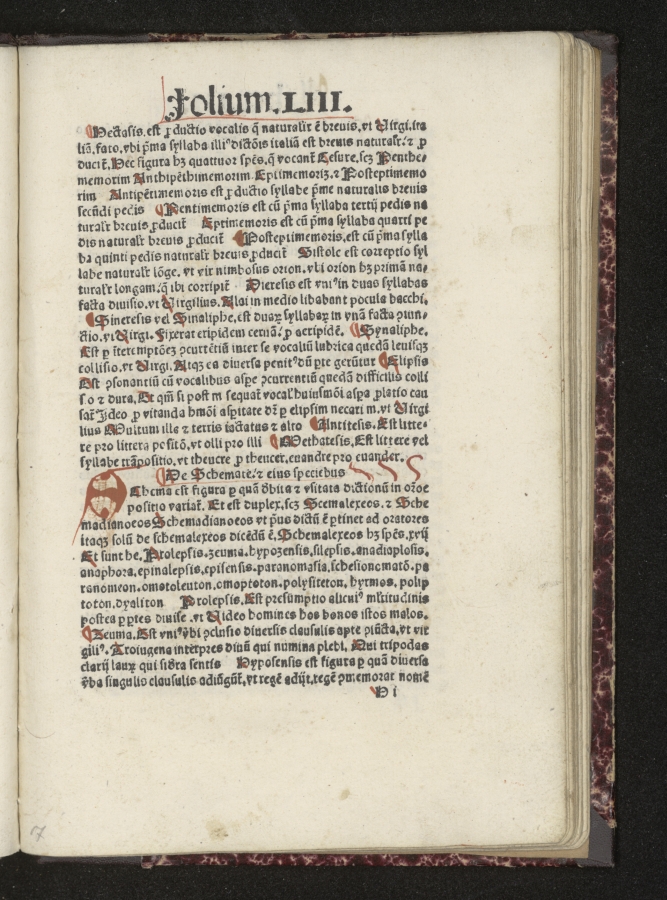 Folium.LIII.
Hectasis.est ꝓductio vocalis q̄ naturalr̄ ē breuis.vt Virgi.ita
liā.fato.vbi pᷓma syllaba illiꝰ dictōis italiā est breuis naturalr̄.⁊ ꝓ
ducit̄.Hec figura hꝫ quattuor spēs.q̄ vocant̄ Cesure.scꝫ Penthe
memorim Anthipēthimemorim Eptimemoriꝫ.⁊ Posteptimemo
rim Antipētimemoris est ꝓductio syllabe pᷓme naturalis breuis
secūdi pedis Pentimemoris est cū pᷓma syllaba tertij pedis na
turalr̄ breuis ꝓducit̄ Eptimemoris est cū pᷓma syllaba quarti pe
dis naturalr̄ breuis ꝓducit̄ Posteptimemoris.est cū pᷓma sylla
ba quinti pedis naturalr̄ breuis ꝓducit̄ Sistole est correptio syl
labe naturalr̄ lōge. vt vir nimbosus orion.vbi orion hꝫ primā na⸗
turalr̄ longam.q̄ ibi corripit̄ Dieresis est vniꝰ in duas syllabas
facta diuisio.vt Virgilius. Alai in medio libabant pocula bacchi.
Sineresis vel Sinaliphe.est duaꝝ syllabaꝝ in vnā facta ꝯiun⸗
ctio.vt Virgi. Fixerat eripidem ceruā.ꝓ aeripidē. Synaliphe.
Est ꝑ īteremptōeꝫ ꝯcurrētiū inter se vocaliū lubrica quedā leuisqꝫ
collisio.vt Virgi. Atqꝫ ea diuersa penitꝰ dū ꝑte gerūtur Elipsis
Est ꝯsonantiū cū vocalibus aspe ꝯcurrentiū quedā difficilis colli
sio ⁊ dura. Et qm̄ si post m sequat̄ vocal̄ huiusmōi aspa ꝓlatio cau
sat̄ Ideo ꝓ vitanda hmōi aspitate dr̄ ꝑ elipsim necari m.vt Virgi
lius Multum ille ⁊ terris iactatus ⁊ alto Antitesis. Est litte⸗
re pro littera positō.vt olli pro illi Methatesis. Est littere vel
syllabe trāspositio.vt theucre ꝓ theucer.euandre pro euander.
De Schemate.⁊ eius speciebus
SChema est figura ꝑ quā dbita ⁊ vsitata dictionū in ordne
positio variat̄. Et est duplex.scꝫ Scemalexeos.⁊ Sche
madianoeos Schemadianoeos vt pᷓus dictū ē ꝑtinet ad oratores
itaqꝫ solū de schemalexeos dicēdū ē. Schemalexeos hꝫ spēs.xvij
Et sunt he. Prolepsis.zeuma.hypozensis.silepsis.anadioplosis.
anaphora.epinalepsis.episensis.paranomasia.schesionomatō.pa
ranomeon.omoteleuton.omoptoton.polysiteton.hyrmos.polip
toton.dyaliton Prolepsis. Est presumptio alicuiꝰ ml̄titudinis
postea ꝑ ꝑtes diuise.vt Video homines hos bonos istos malos.
Zeuma. Est vniꝰ v̄bi ꝯclusio diuersis clausulis apte ꝯiūcta.vt vir
giliꝰ. Troiugena interpres diuū qui numina phebi. Qui tripodas
clarij lauꝝ qui sidera sentis Hyposensis est figura ꝑ quā diuersa
v̄ba singulis clausulis adiūgūt̄.vt regē adijt.regē ꝯmemorat nomē
H i
7